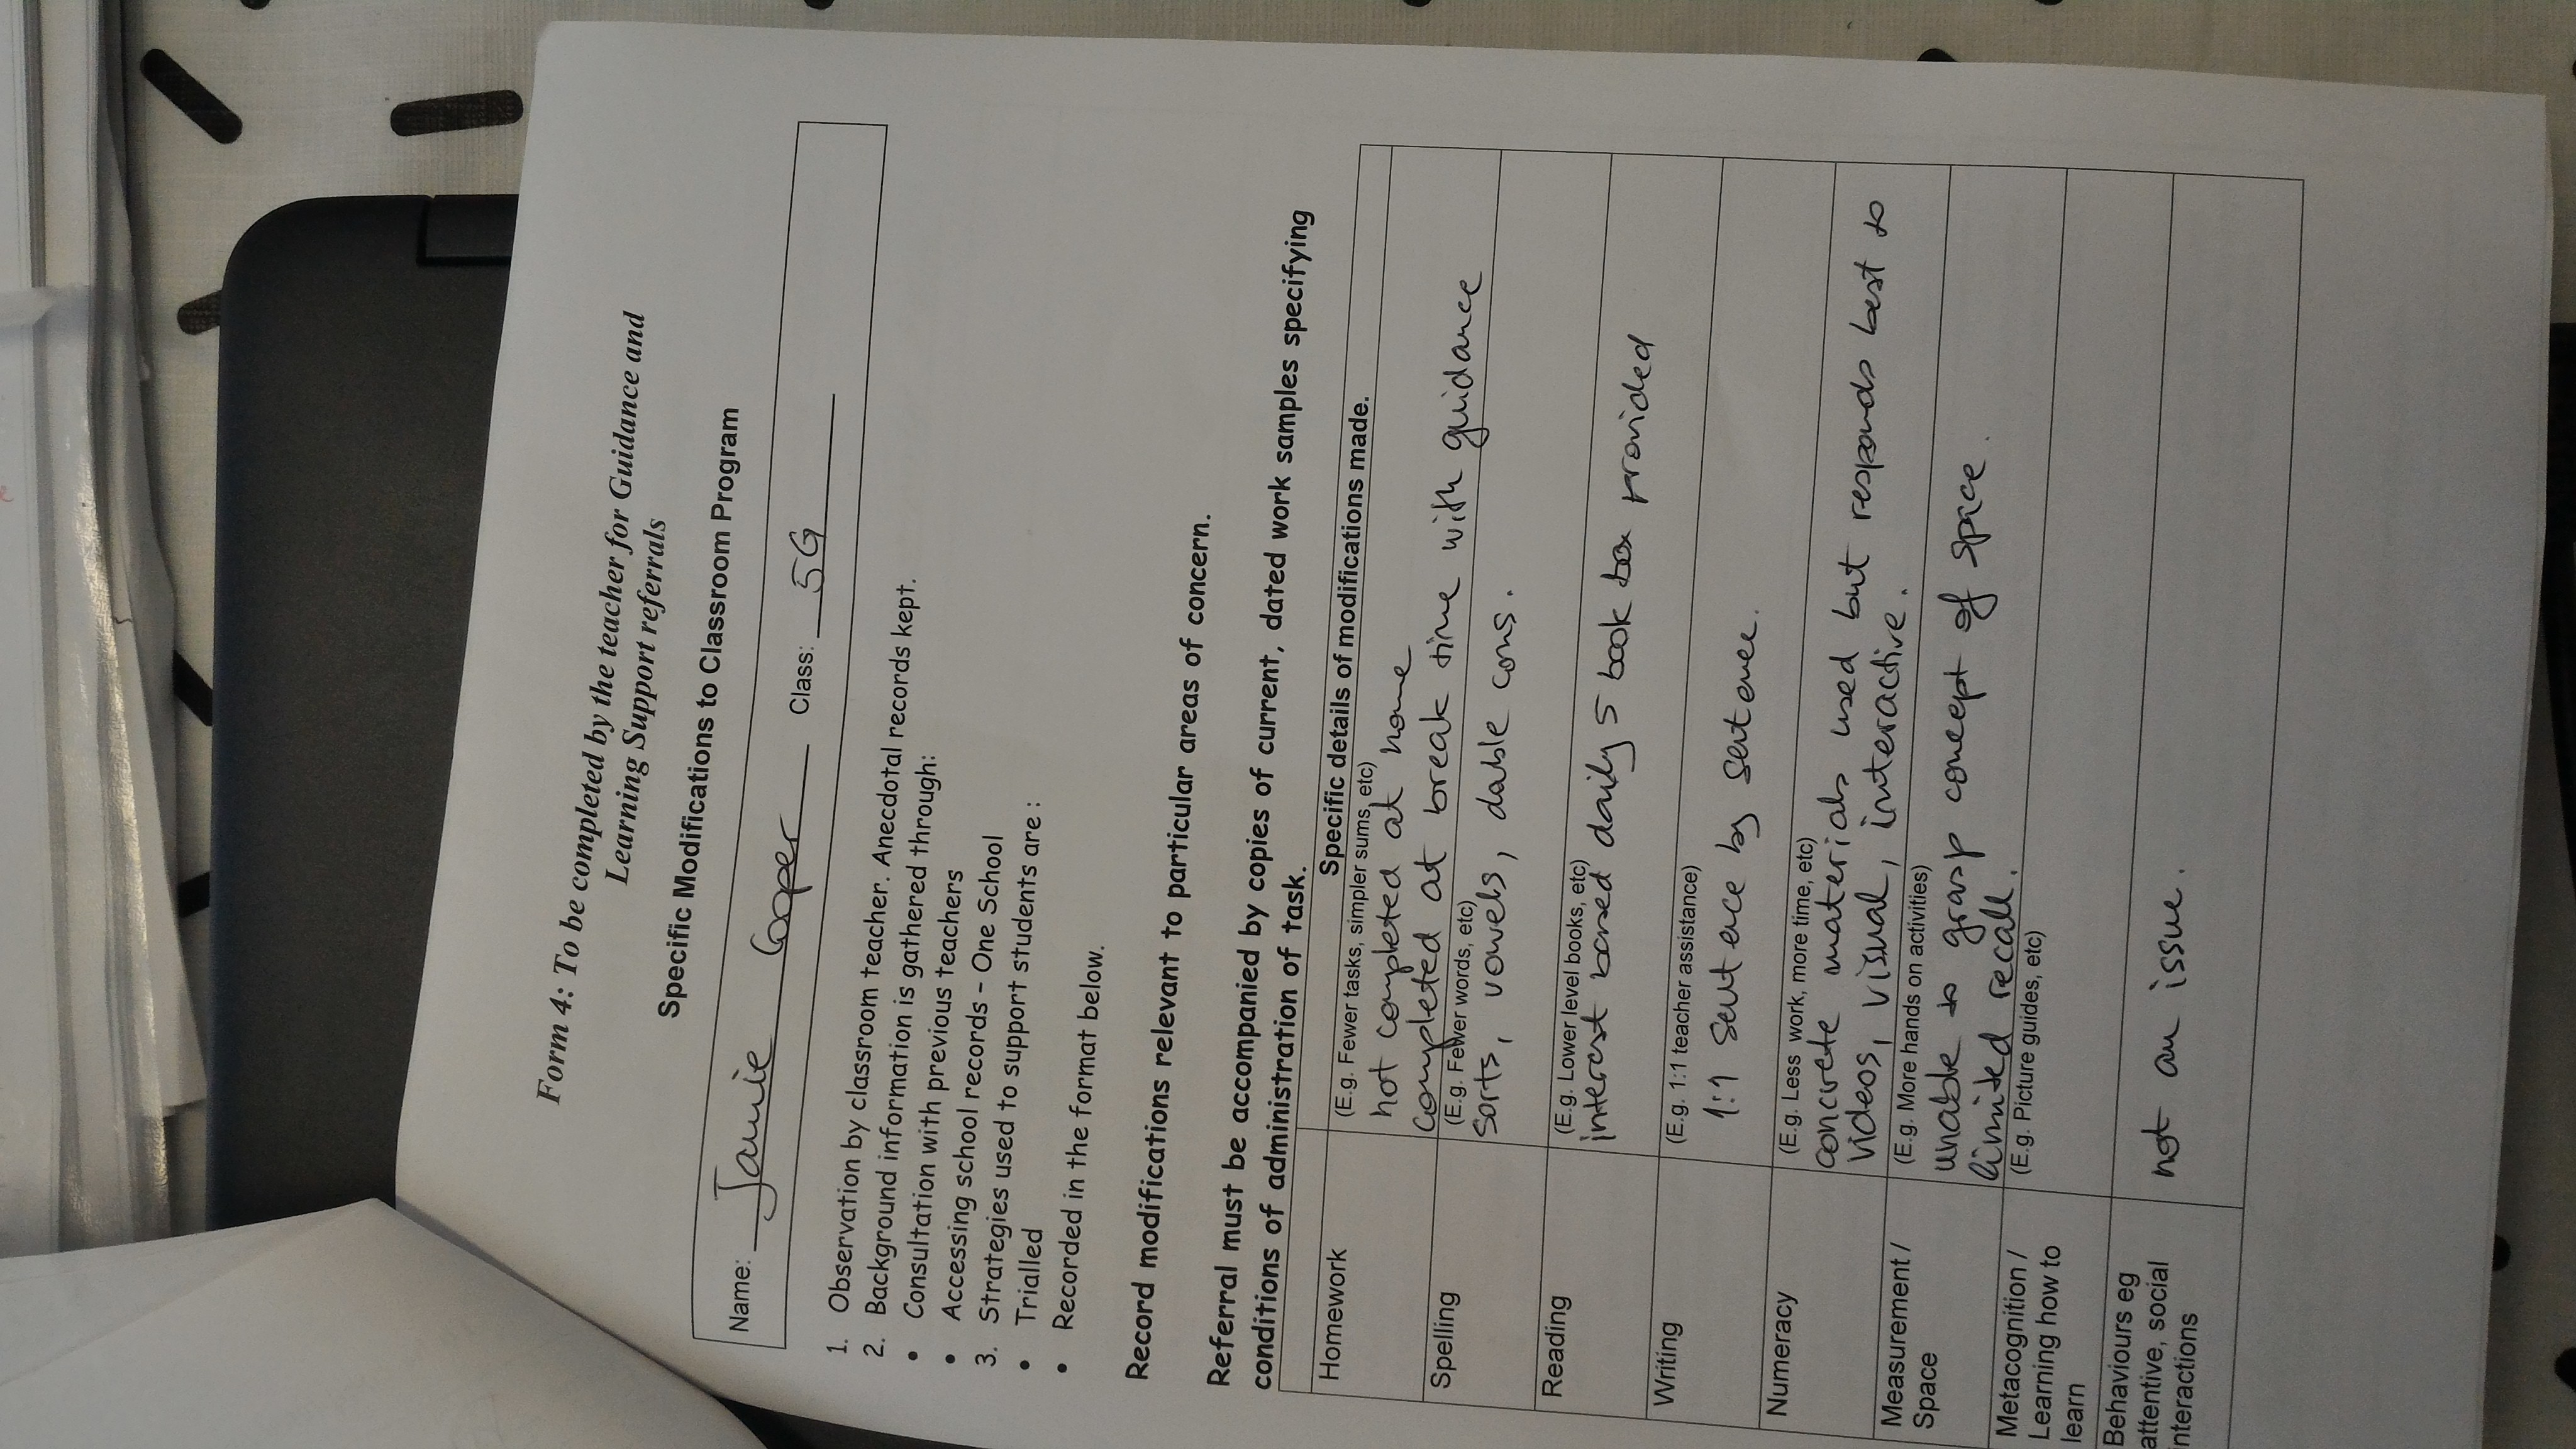 Form 4: To be completed by the teacher for Guidance and
Learning Support referrals
Specific Modifications to Classroom Program
Name: Jamie Cooper Class: 5G
1. Observation by classroom teacher. Anecdotal records kept.
2. Background information is gathered through:
• Consultation with previous teachers
• Accessing school records – One School
3. Strategies used to support students are :
• Trialled
• Recorded in the format below.
Record modifications relevant to particular areas of concern.
Referral must be accompanied by copies of current, dated work samples specifying
conditions of administration of task.
Specific details of modifications made.
Homework
(E.g. Fewer tasks, simpler sums, etc)
not completed at home
completed at break time with guidance
Spelling
(E.g. Fewer words, etc)
sorts, vowels, dable cons.
Reading
(E.g. Lower level books, etc)
interest based daily 5 book box provided
Writing
(E.g. 1:1 teacher assistance)
1:1 sentence by sentence.
Numeracy
(E.g. Less work, more time, etc)
concrete materials used but responds best to
videos, visual, interactive.
Measurement /
Space
(E.g. More hands on activities)
unable to grasp concept of space.
limited recall.
Metacognition /
Learning how to
learn
(E.g. Picture guides, etc)
Behaviours eg
attentive, social
interactions
not an issue.